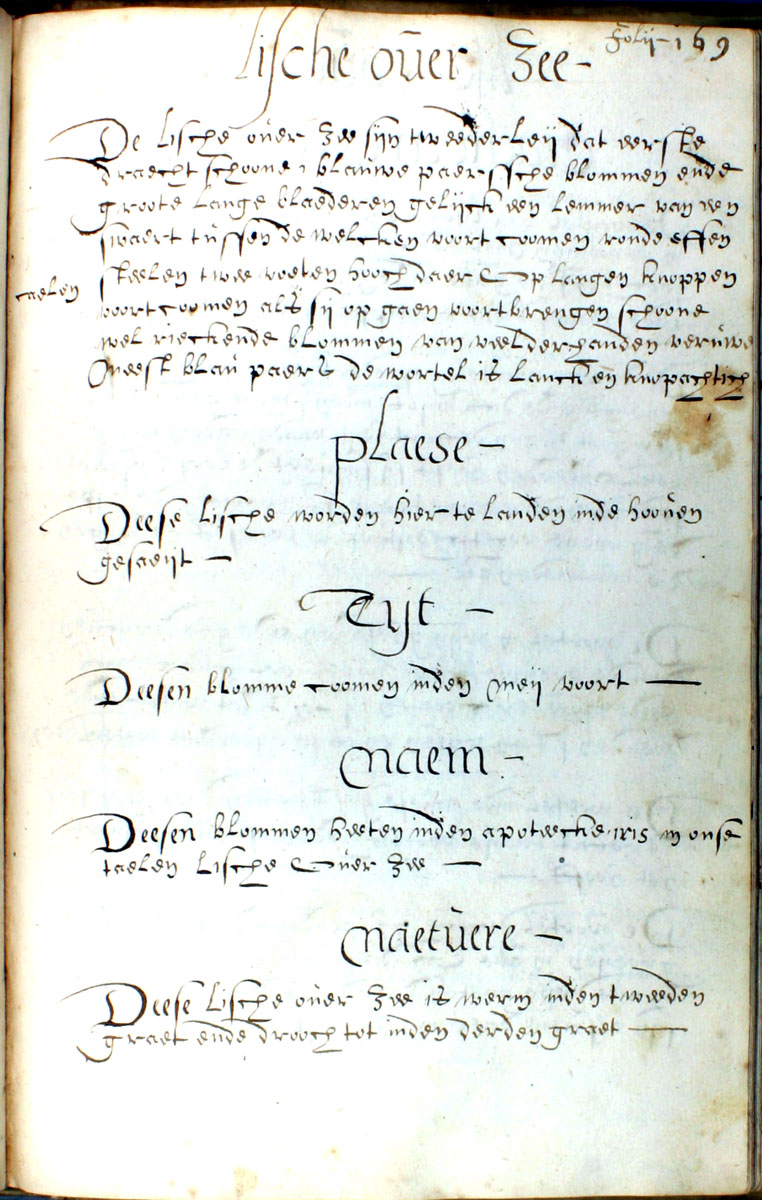 Folij 169
lische oũer zee
De lische oũer zee sijn tweederleij dat eerste
draecht schoone blaũwe paerssche blommen ende
groote lange blaederen gelijck een lemmer van een
swaert tũssen de welcken voort coomen ronde effen
steelen twee voeten hooch daer op langen knoppen
caelen
voortcoomen als sij op gaen voortbrengen schoone
wel rieckende blommen van veelderhanden verũwe
meest blaũ paers de wortel is lanck en knopachtich
plaese
Deese lische worden hier te landen inde hooũen
gesaeijt
Tijt
Deesen blomme coomen inden meij voort
naem
Deesen blommen heeten inden apoteecke iris in onse
taelen lische oũer zee
naetũere
Deese lische oũer zee is werm inden tweeden
graet ende drooch tot inden derden graet